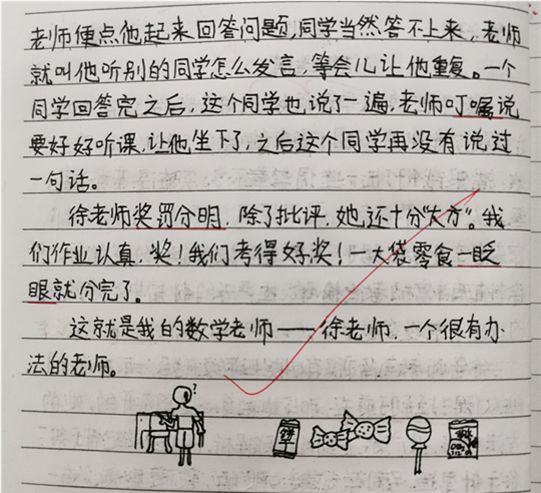 老师便点他起来回答问题,同学当然答不上来,老师
就叫他听别的同学怎么发言,等会儿让他重复。一个
同学回答完之后,这个同学也说了一遍,老师叮嘱说
要好好听课,让他坐下了,之后这个同学再没有说过
一句话。
徐老师奖罚分明,除了批评,她还十分“大方”。我
们作业认真,奖!我们考得好奖!一大袋零食一眨
眼就分完了。
这就是我的数学老师——徐老师,一个很有办
法的老师。